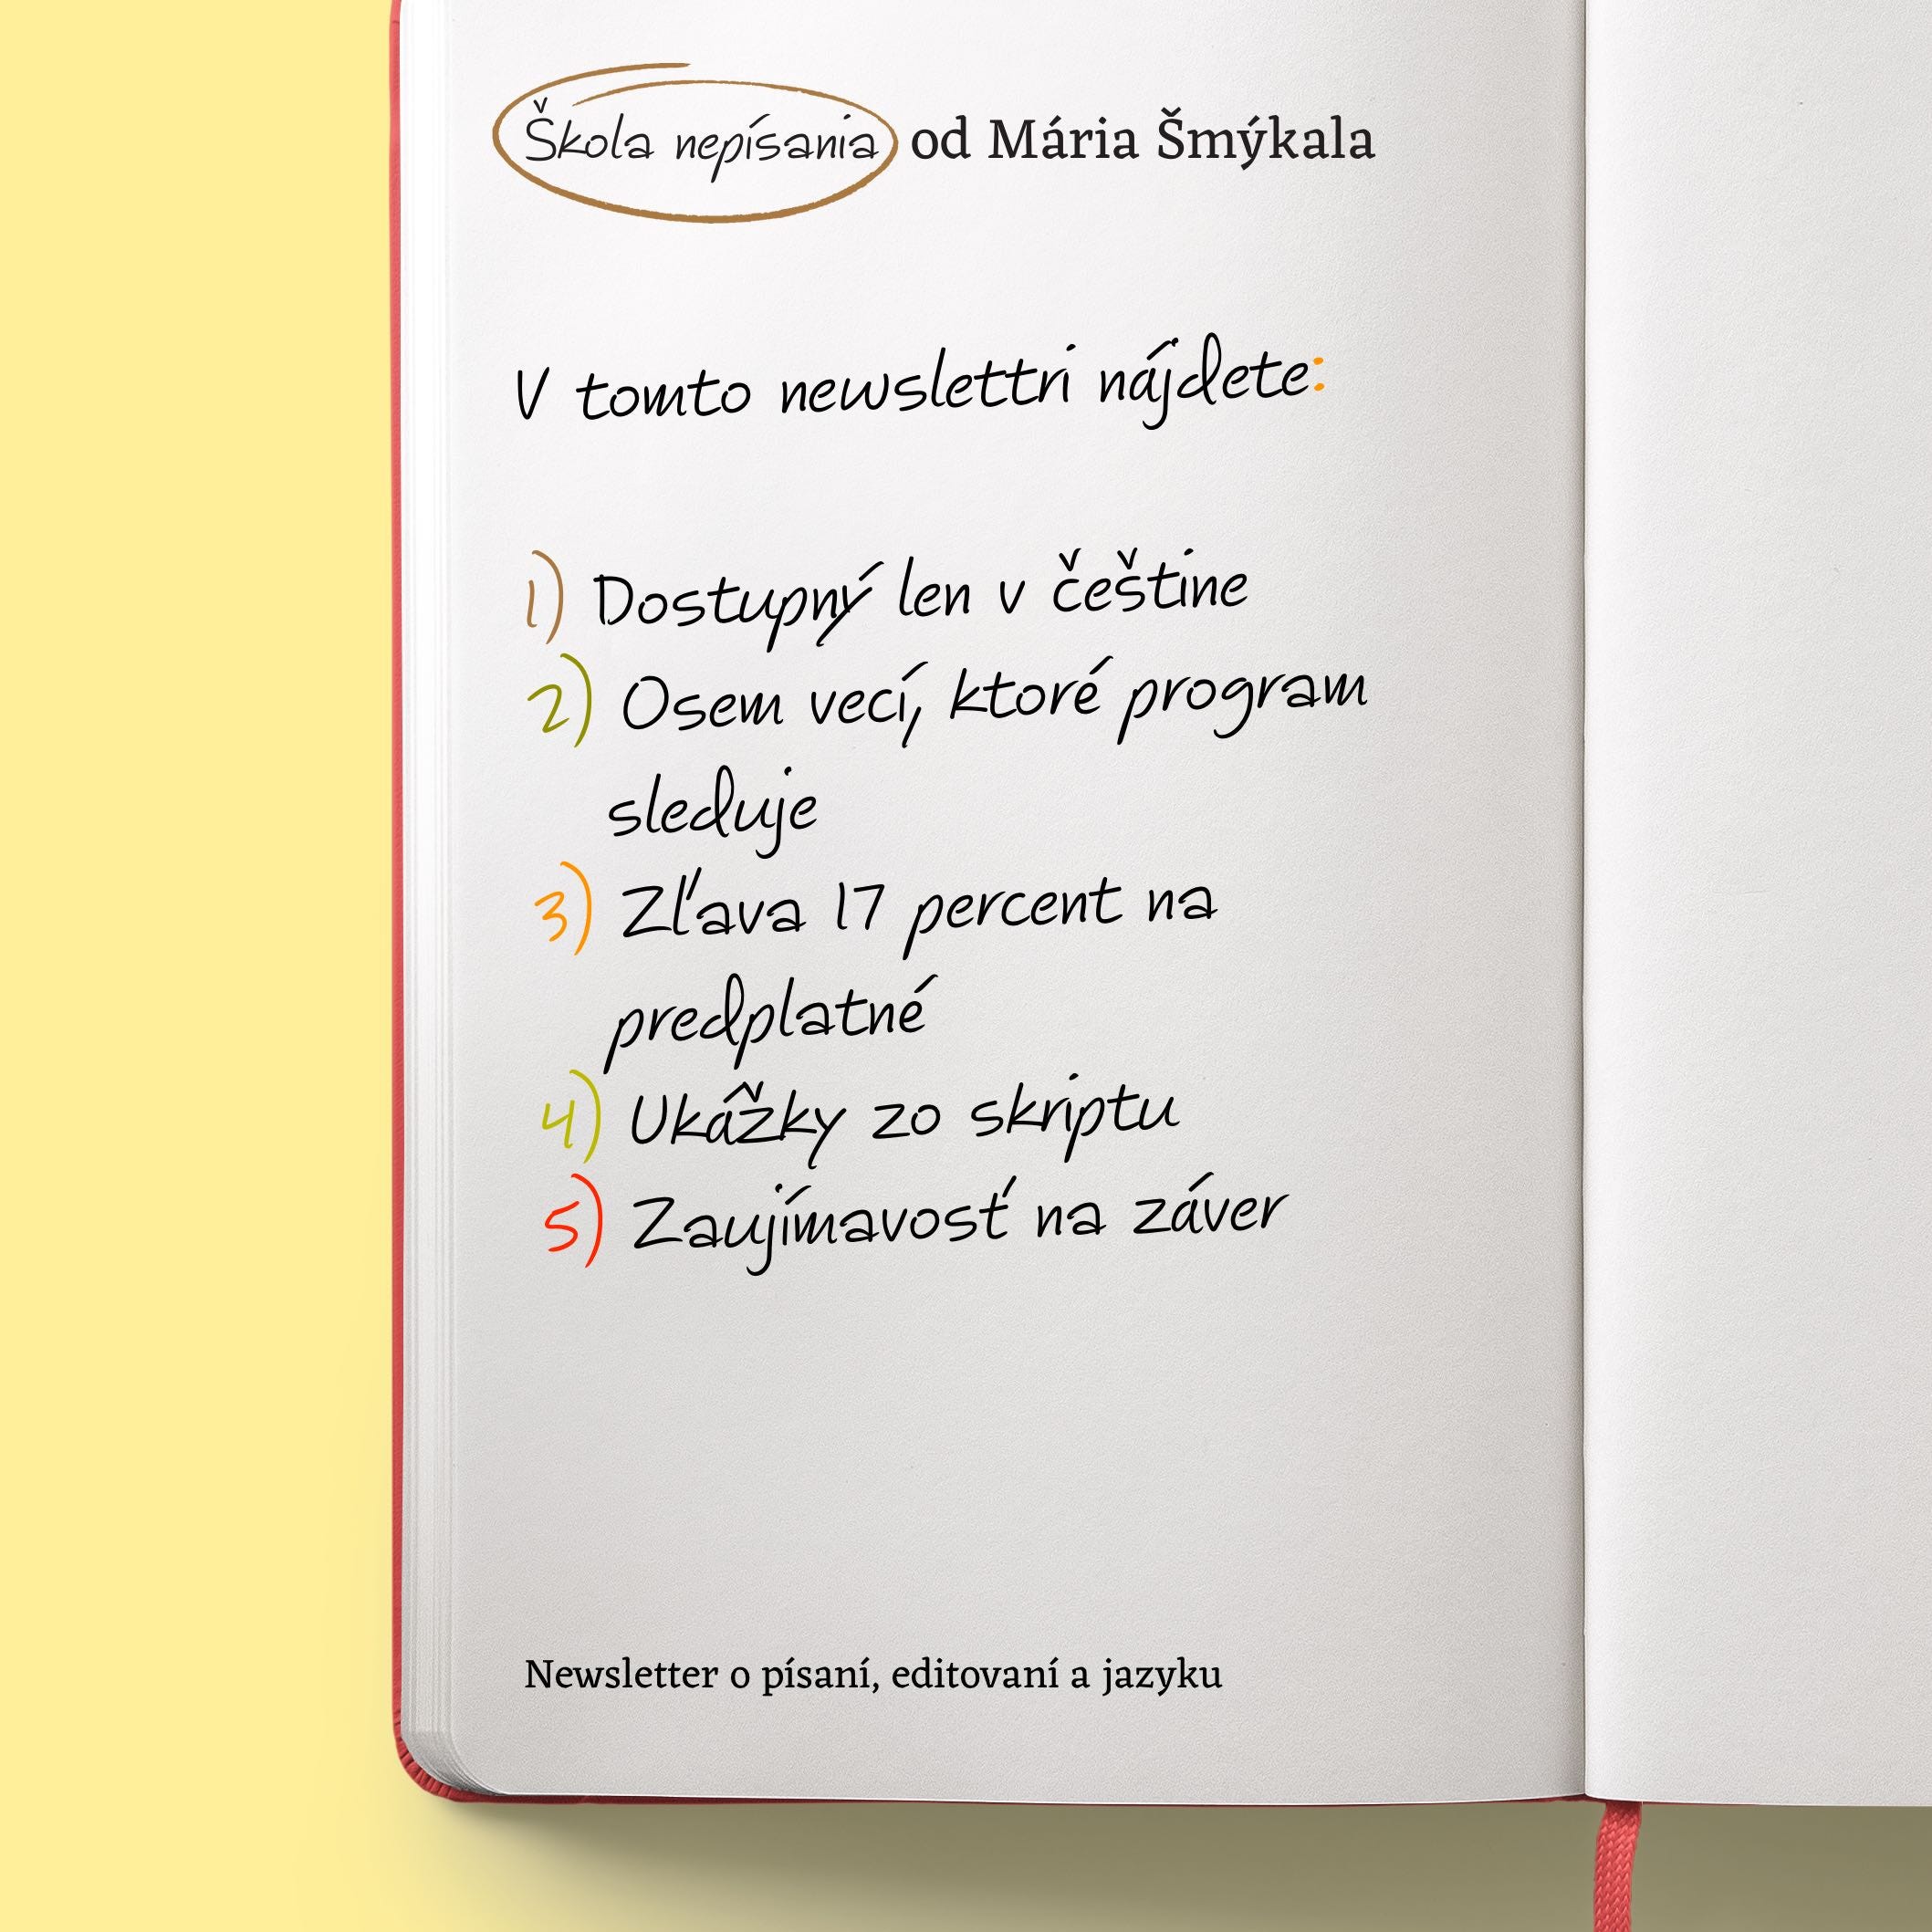 Škola nepísania od Mária Šmýkala
V tomto newslettri nájdete:
1) Dostupný len v češtine
2) Osem vecí, ktoré program
sleduje
3) Zľava 17 percent na
predplatné
4) Ukážky zo skriptu
5) Zaujímavosť na záver
Newsletter o písaní, editovaní a jazyku